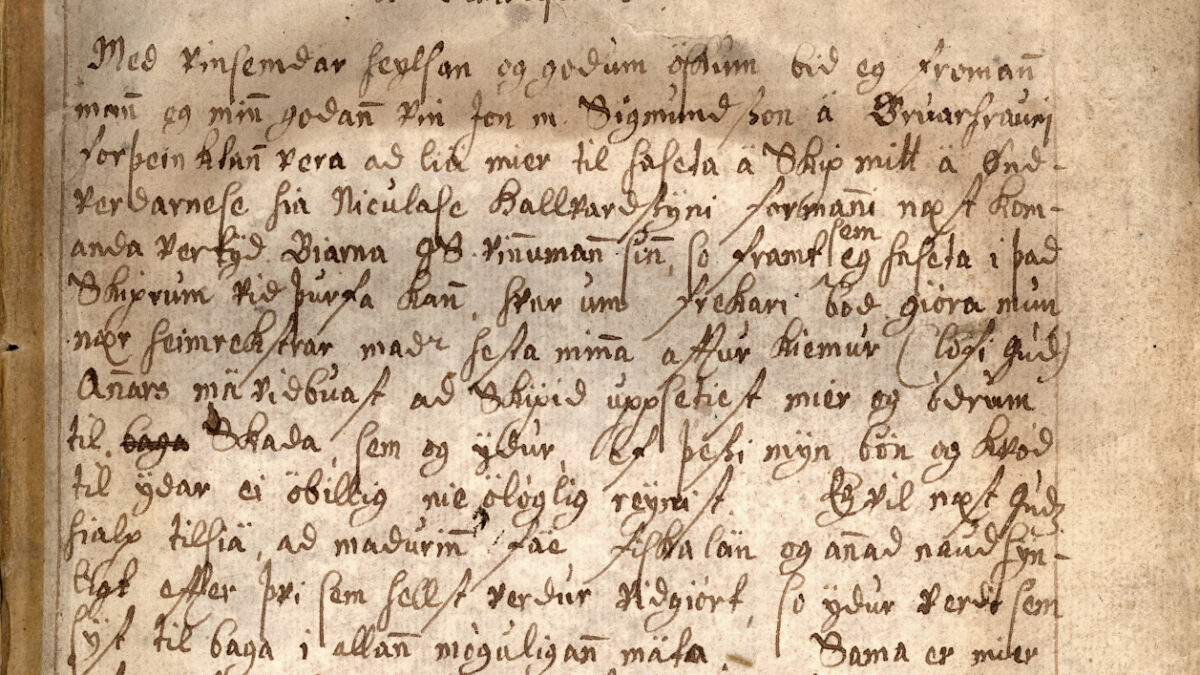 Med vinsemdar heylsan og godum öskum bid eg fromann
mann og minn godann vin Jon m Sigmundsson ä
forþeinktann vera ad liä mier til haseta ä Skip mitt ä Ønd-
verdarnese hia Niculase Hallvardssÿni formanni næst kom-
anda vertÿd Biarna JS vinnumann sinn, so framt sem eg haseta i þad
Skiprum vid þurfa kann, hvar um frekari bod giöra mun
nær heimrekstrar madr hesta minna aftur kiemur (lofi Gud)
Annars mä vidbuast ad Skipid uppsetiest mier og ödrum
til baga Skada, sem og ÿdur, ef þessi mÿn bön og kvöd
til ÿdar ei öbillig nie ölöglig reÿnist. Eg vil næst Guds
hialp tilsiä, ad madurinn fäe fiska län og annad naudsÿn-
ligt efter þvi sem hellst verdur vidgiört, so ÿdur verdi sem
sÿst til baga i allann möguligann mäta. Sama er mier